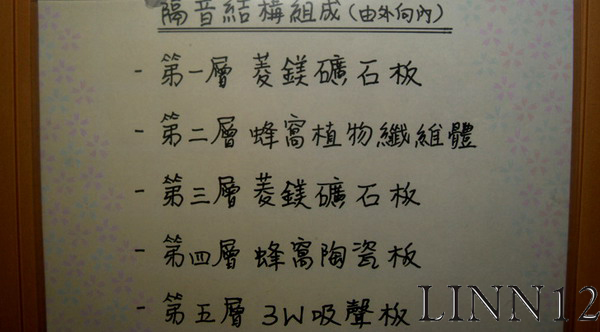 隔音結構組成(由外向內)
- 第一層 菱鎂礦石板
- 第二層 蜂窩植物纖維體
- 第三層 菱鎂礦石板
- 第四層 蜂窩陶瓷板
- 第五層 3W吸聲板
LINN12